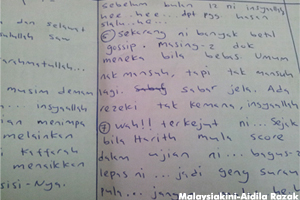 an dan selamat
ulullah saw
rahmatullah...
musim demam
n... insyallah
ian menimpa
melainkan
i Kaffarah
menaikkan
sisi-Nya.
sebelum bulan 12 ni insyallah
hee.. hee...
⑥ sekarang ni banyak betul
gossip. Masing-2 duk
meneka bila bebas. Umum
nak musnah, tapi tak musnah
lagi. sabar jela. Ada
rezeki tak kemana, insyallah
⑦ Wah!! terkejut ni... Sejak
bila Harith mula score
dalam ujian ni... bagus-2
lepas ni... jadi geng surau
pula...
Malaysiakini-Aidila Razak